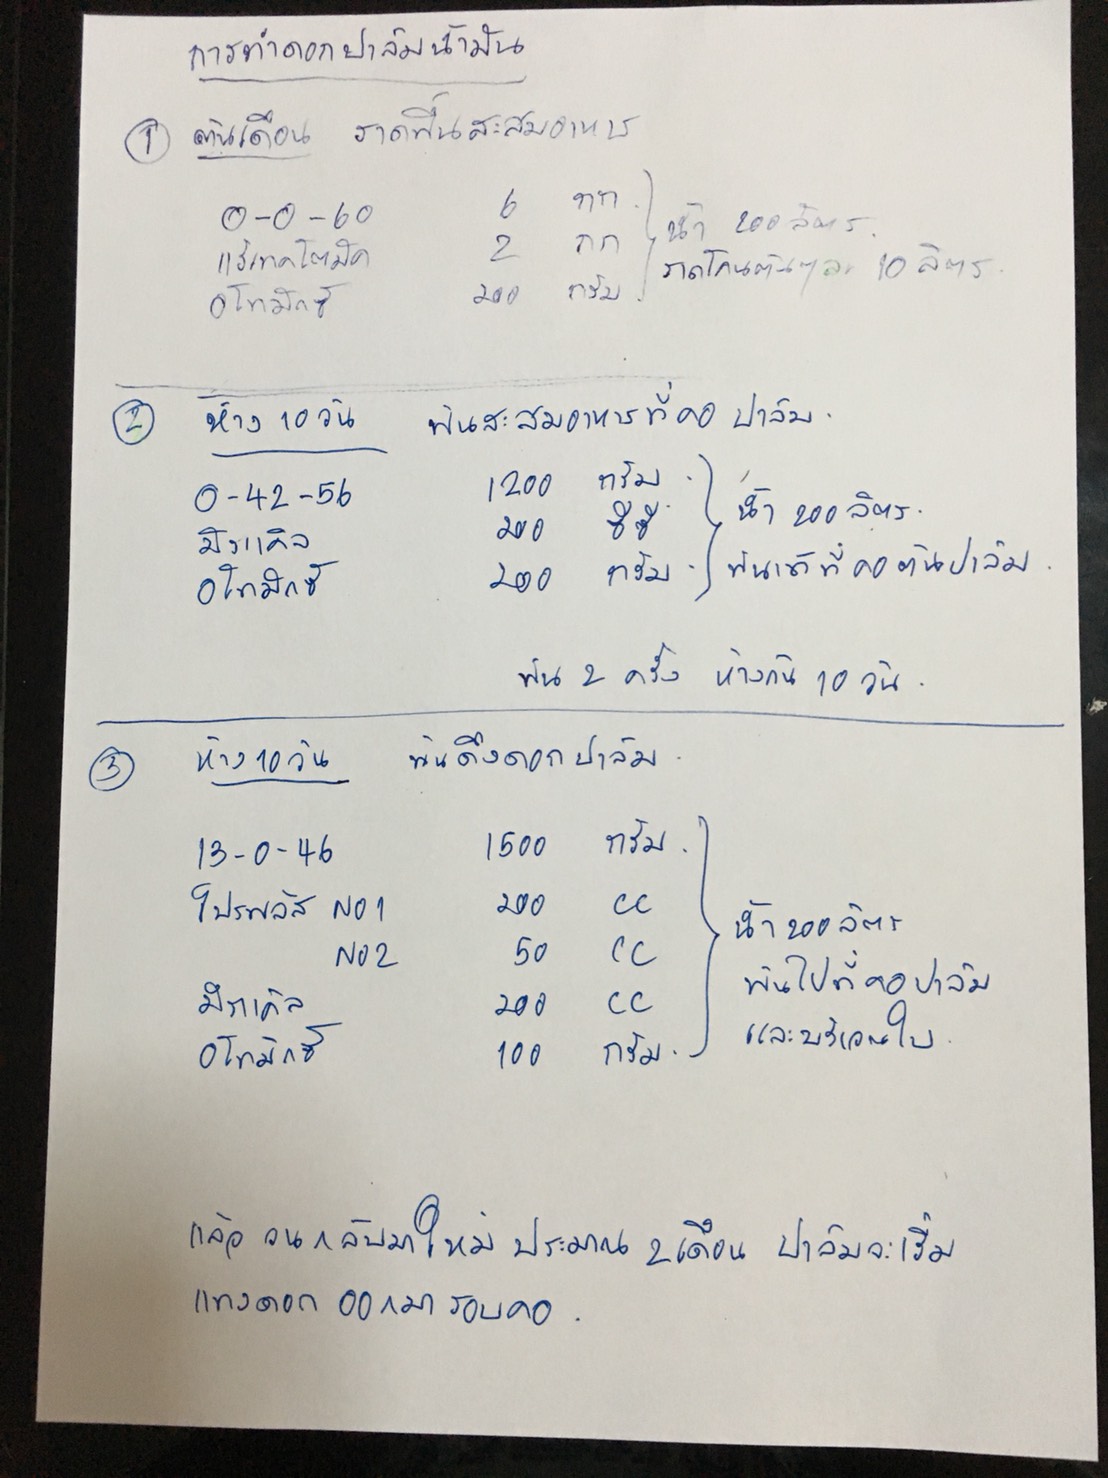 การทำดอกปาล์มน้ำมัน
① ต้นเดือน ราดพื้นสะสมอาหาร
0-0-60 6 กก.
แร่เทคโตมิค 2 กก
อโทมิกซ์ 200 กรัม.
น้ำ 200 ลิตร.
ราดโคนต้นๆละ 10 ลิตร.
② ห่าง 10 วัน พ่นสะสมอาหารที่คอปาล์ม.
0-42-56 1200 กรัม.
มิราเคิล 200 ซีซี
อโทมิกซ์ 200 กรัม.
น้ำ 200 ลิตร.
พ่นเข้าที่คอต้นปาล์ม.
พ่น 2 ครั้ง ห่างกัน 10 วัน.
③ ห่าง 10 วัน พ่นดึงดอกปาล์ม.
13-0-46 1500 กรัม.
โปรพลัส NO1 200 CC
NO2 50 CC
มิราเคิล 200 CC
อโทมิกซ์ 100 กรัม.
น้ำ 200 ลิตร
พ่นไปที่คอปาล์ม
และบริเวณใบ.
แล้ววนกลับมาใหม่ ประมาณ 2 เดือน ปาล์มจะเริ่ม
แทงดอกออกมารอบคอ.